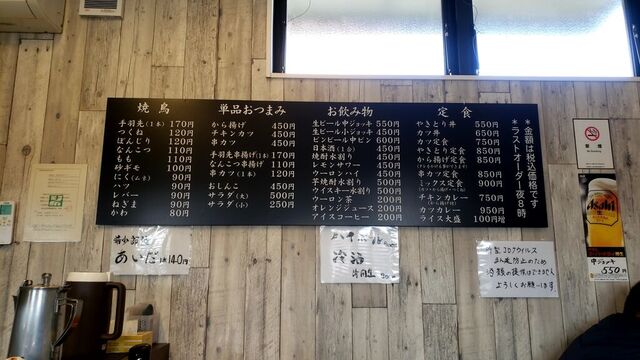 焼鳥
手羽先(1本) 170円
つくね 120円
ぼんじり 120円
なんこつ 110円
もも 110円
砂ギモ 100円
にく(ムネ) 90円
ハツ 90円
レバー 90円
ねぎま 90円
かわ 80円
単品おつまみ
から揚げ 450円
チキンカツ 450円
串カツ 450円
手羽先串揚げ(1本) 170円
なんこつ串揚げ 110円
串カツ(1本) 120円
おしんこ 450円
サラダ(大) 500円
サラダ(小) 250円
お飲み物
生ビール中ジョッキ 550円
生ビール小ジョッキ 450円
ビンビール中ビン 600円
日本酒(1合) 450円
焼酎水割り 450円
レモンサワー 450円
ウーロンハイ 450円
芋焼酎水割り 500円
ウイスキー水割り 500円
ウーロン茶 200円
オレンジジュース 200円
アイスコーヒー 200円
定食
やきとり丼 550円
カツ丼 650円
カツ定食 750円
やきとり定食 850円
から揚げ定食 850円
串カツ定食 850円
ミックス定食 900円
チキンカレー 750円
カツカレー 950円
ライス大盛 100円増
*金額は税込価格です
*ラストオーダー夜8時
禁煙
あいだ 1本140円
冷酒
新型コロナウイルス
防止のため
よろしくお願いします
Asahi
生
中ジョッキ
550円